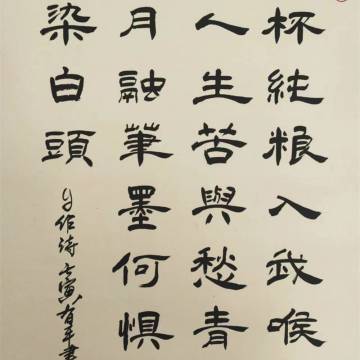 杯純粮入我喉
人生苦與愁青
月融筆墨何懼
染白頭
自作诗壬寅有年書